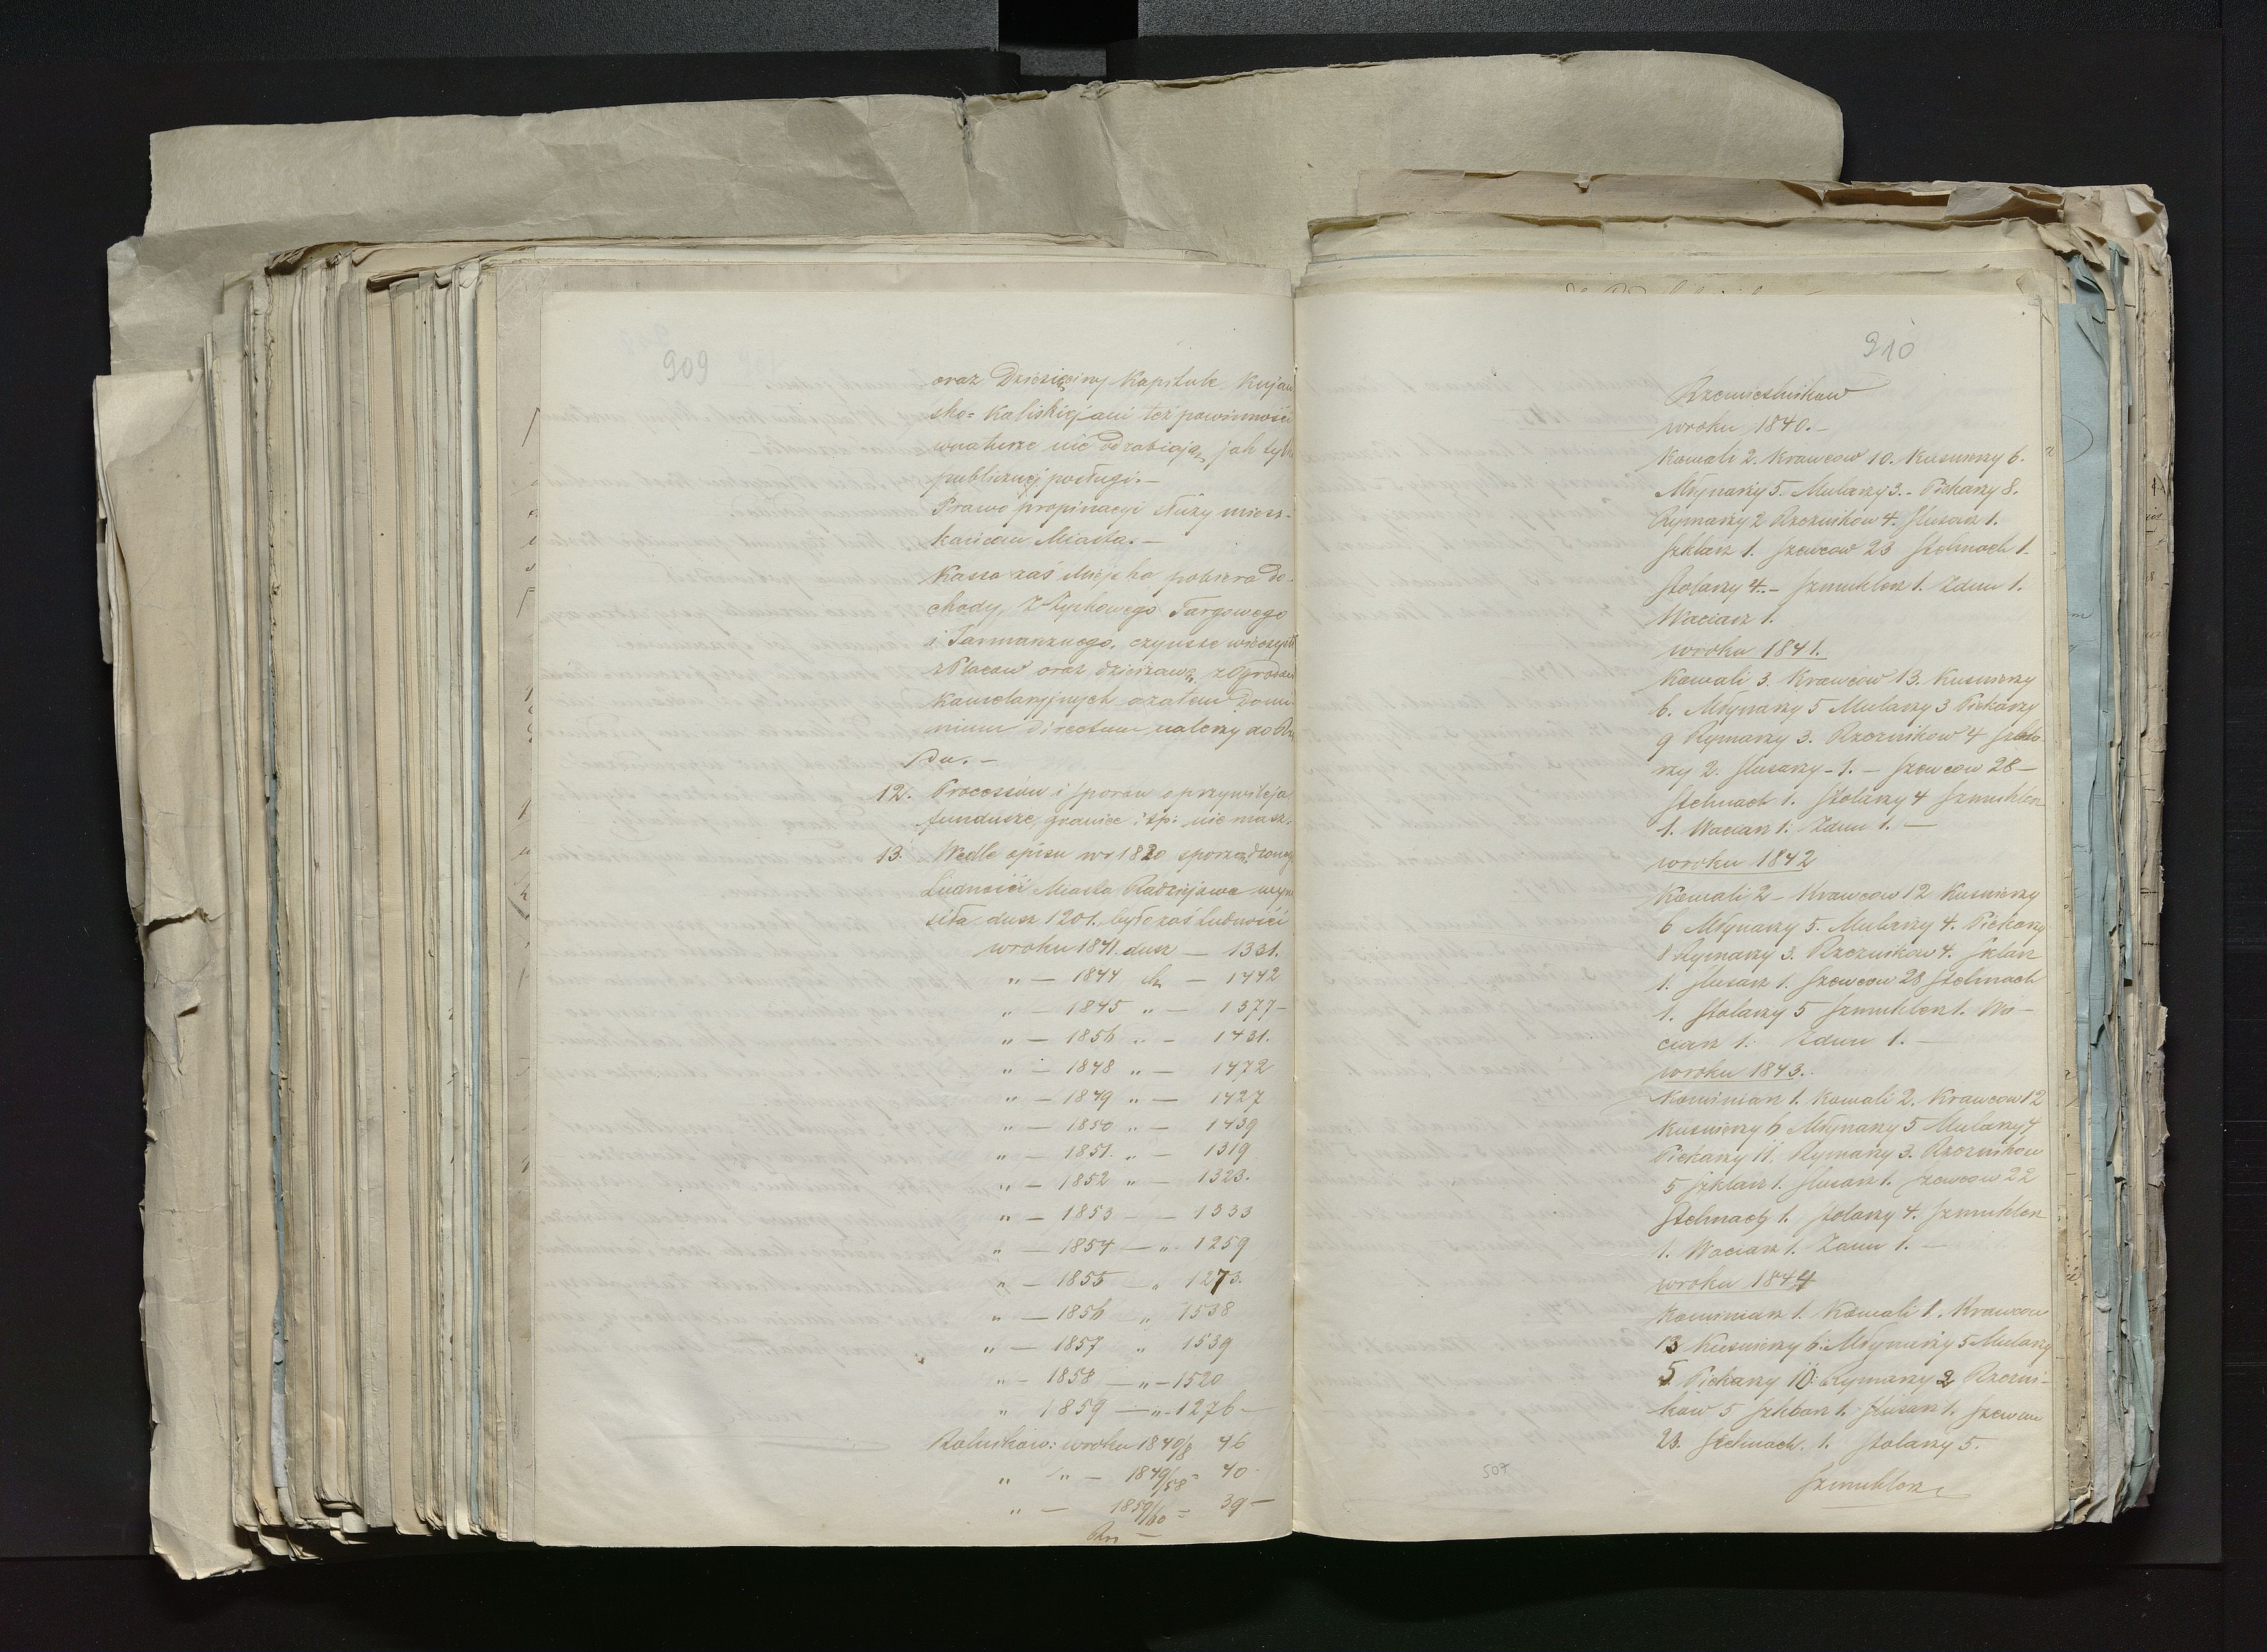 909
oraz Dziesięciny Kapitule Kujaw
sko= Kaliskiej ani też powinności
wnaturze nie odrabiają, jak tylk
publicznej posługi. —
Prawo propinacyi służy miesz-
kańcom Miasta. —
Kassa zaś Miejska pobiera do-
chody, z Zyskowego Targowego
i Jarmarcznego, czynsze wieczyste
z Placow oraz dzierżawę z Ogrodow
Kancelaryjnych a zatem Domi
nium directum należy do Rzą
du. —
12. Processów i sporow o przywileja
fundusze, granice i tp: nie masz.
13. Wedle opisu wr 1820 sporządzonego
Ludności Miasta Radziejowa wyno
siła dusz 1201. było zaś ludności
wroku 1841. dusz — 1331.
„ — 1844 — 1442
„ — 1845 „ — 1377 —
„ — 1856 „ — 1431.
„ — 1848 „ — 1472
„ — 1849 „ — 1427
„ — 1850 „ — 1439
„ — 1851. „ — 1319
„ — 1852 „ — 1323.
„ — 1853 — — 1333
„ — 1854 — „ 1259
„ — 1855 — „ 1273.
„ — 1856 „ 1538
„ — 1857 „ 1539
„ — 1858 — „ — 1520
„ 1859 — „ — 1276 —
Rolnikow: wroku 1840/8 46
„ „ — 1849/58 = 40
„ — 1859/60 = 39 —
Rze —
910
Rzemieslnikow
wroku 1840. —
Kowali 2. Krawcow 10. Kusnierzy 6.
Młynarzy 5. Mularzy 3. - Piekarzy 8.
Rymarzy 2 Rzeznikow 4. Slusarz 1.
Szklarz 1. Szewcow 23 Stelmach 1.
Stolarzy 4. - Szmuklerz 1. Zdun 1.
Waciarz 1.
wroku 1841.
Kowali 3. Krawcow 13. Kusnierzy
6. Młynarzy 5 Mularzy 3 Piekarzy
9 Rymarzy 3. Rzeznikow 4 Szkla
rzy 2. Slusarzy - 1. — Szewcow 28 —
Stelmach 1. Stolarzy 4 Szmuklerz
1. Waciarz 1. Zdun 1. —
wroku 1842
Kowali 2 - Krawcow 12 Kusnierzy
6 Młynarzy 5. Mularzy 4. Piekarzy
8 Rymarzy 3. Rzeznikow 4. Sklarz
1. Slusarz 1. Szewcow 28 Stelmach
1. Stolarzy 5 Szmuklerz 1. Wa —
ciarz 1: Zdun 1. —
wroku 1843.
Kominiarz 1. Kowali 2. Krawcow 12
Kusnierzy 6 Młynarzy 5 Mularzy 4
Piekarzy 11. Rymarzy 3. Rzeznikow
5 Szklarz 1. Slusarz 1. Szewcow 22
Stelmach 1. Stolarzy 4. Szmuklerz
1. Waciarz 1. Zdun 1. —
wroku 1844
Kominiarz 1. Kowali 1. Krawcow
13 Kusnierzy 6. Młynarzy 5 Mularzy
5. Piekarzy 10: Rymarzy 2 Rzezni-
kow 5 Szklarz 1. Slusarz 1. Szewcow
23. Stelmach. 1. Stolarzy 5.
Szmuklerz
507